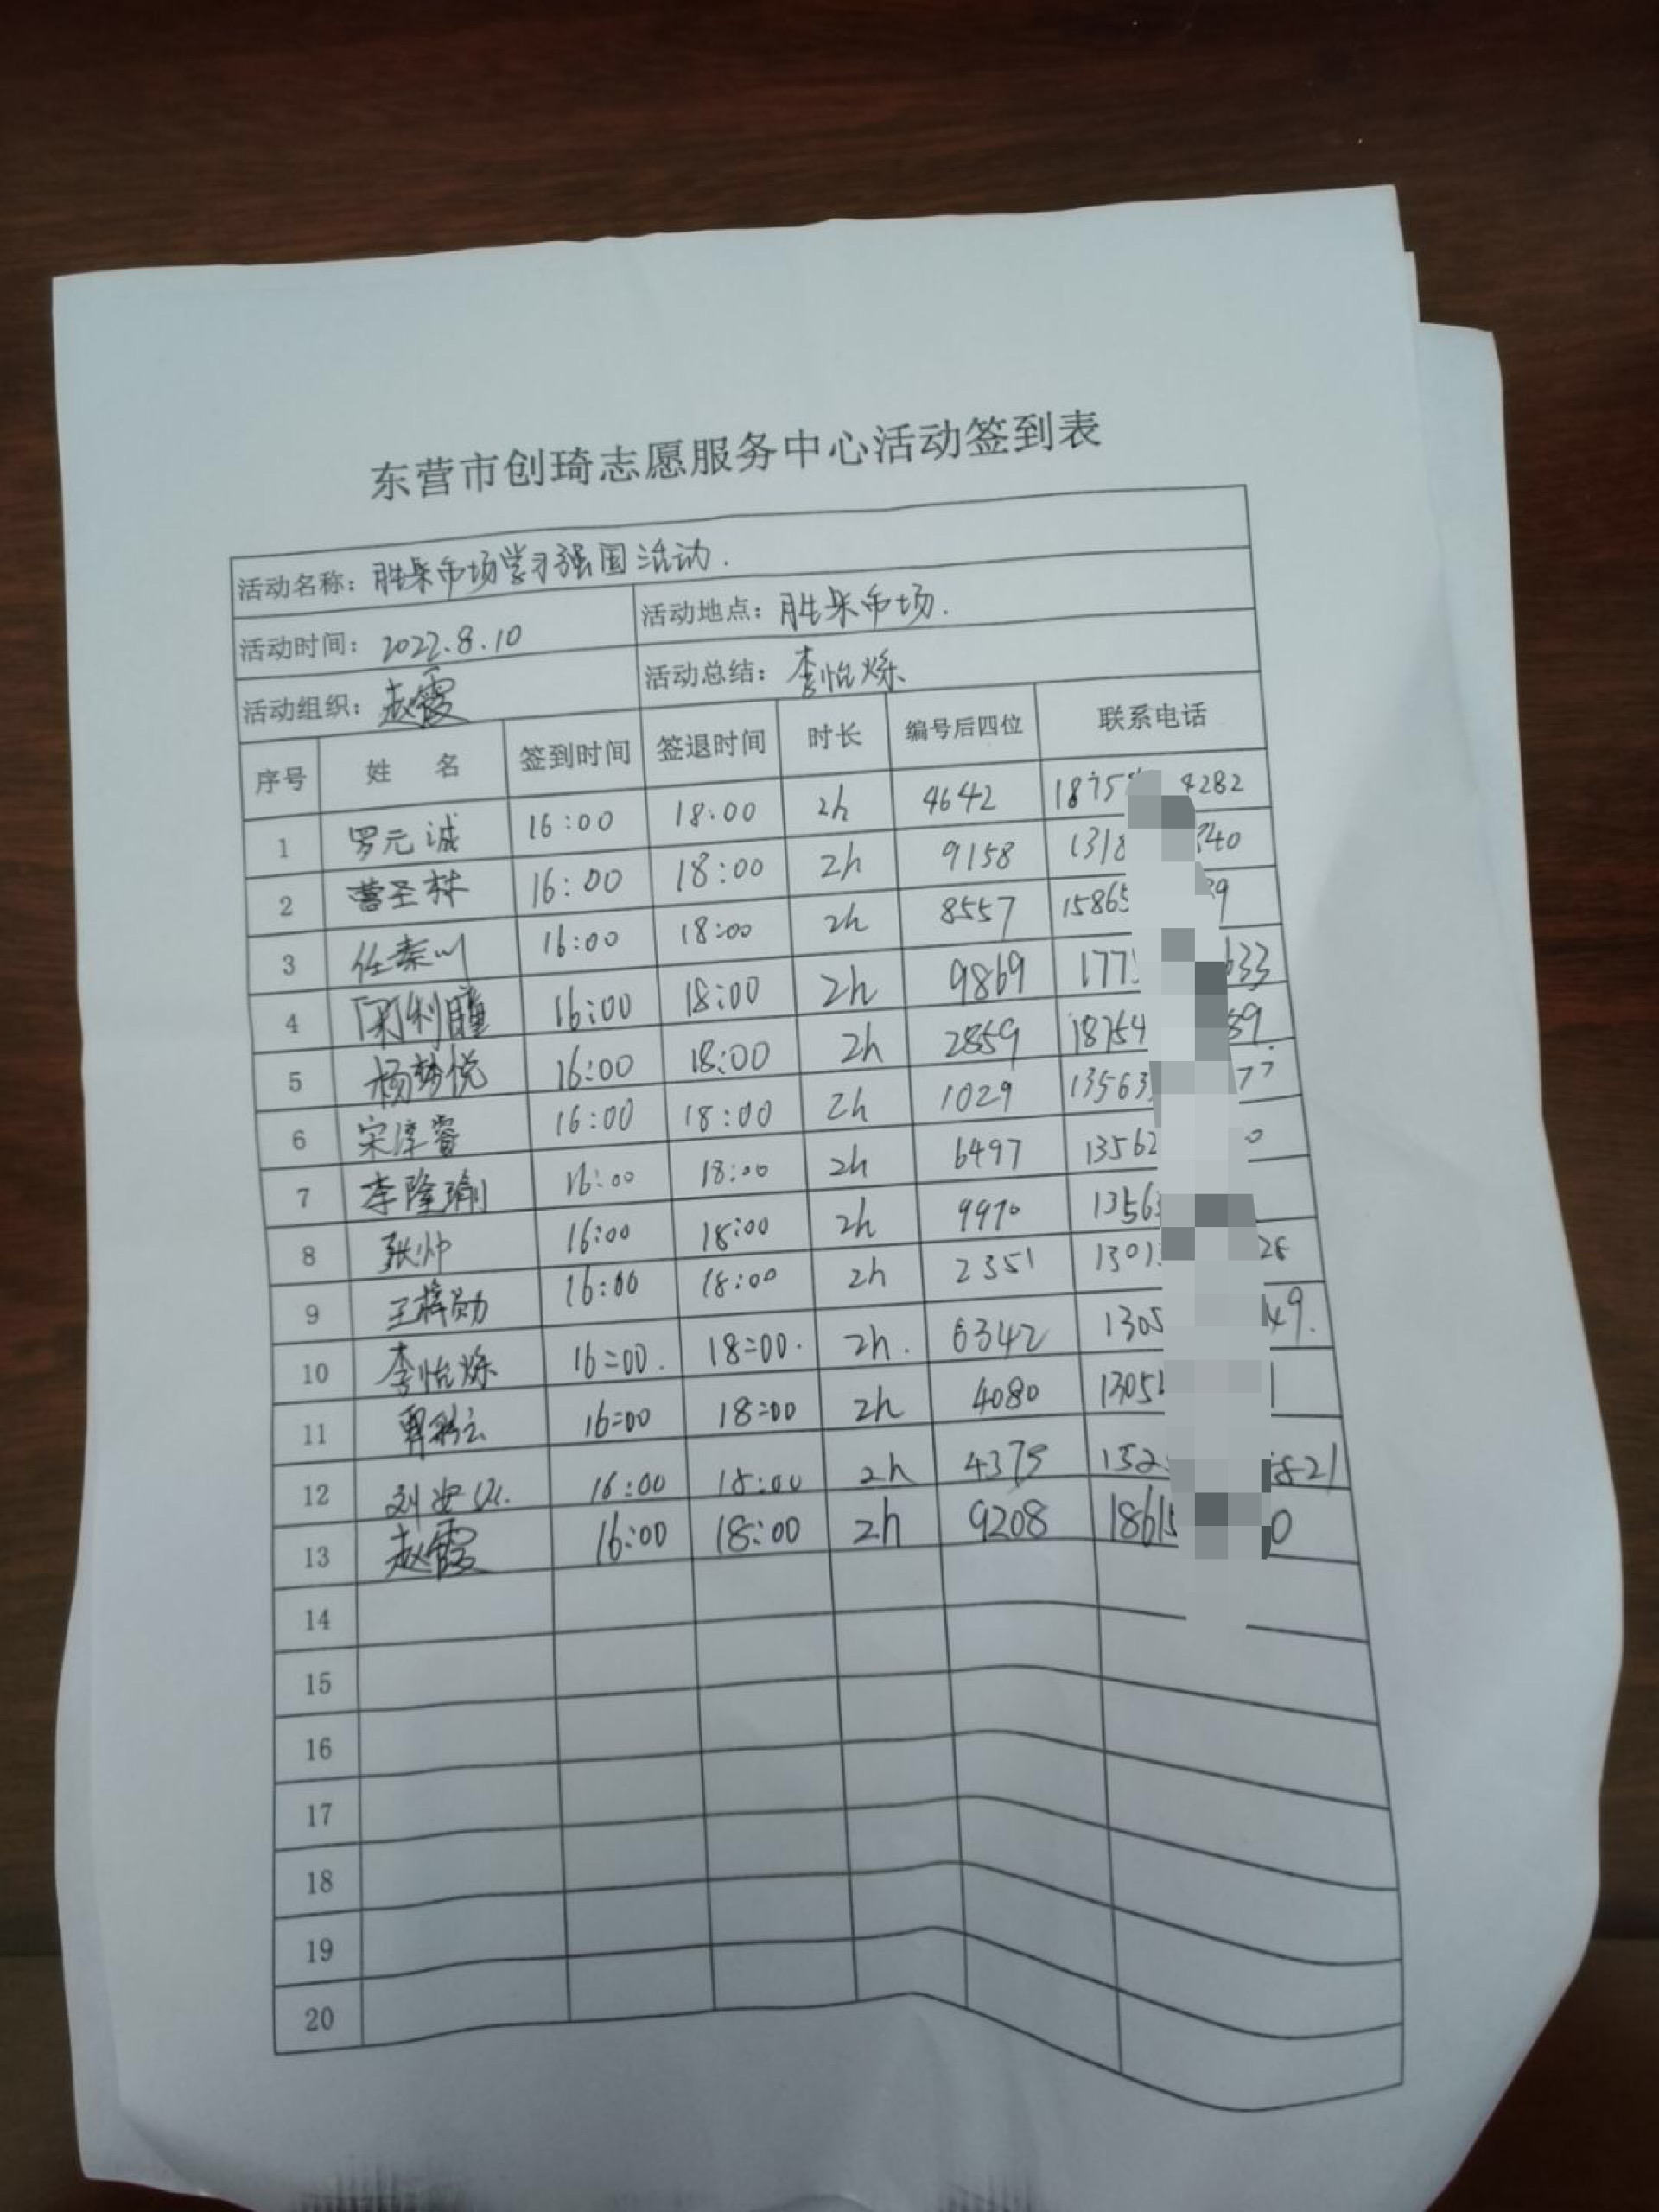 东营市创琦志愿服务中心活动签到表
活动名称：胜采市场学习强国活动.
活动时间：2022.8.10 活动地点：胜采市场.
活动组织：赵霞 活动总结：李怡烁
序号 姓 名 签到时间 签退时间 时长 编号后四位 联系电话
1 罗元诚 16:00 18:00 2h 4642 1875 4282
2 曹圣林 16:00 18:00 2h 9158 1318 340
3 任秦川 16:00 18:00 2h 8557 15865 39
4 16:00 18:00 2h 9869 177 633
5 杨梦悦 16:00 18:00 2h 2859 18754 89.
6 宋淳睿 16:00 18:00 2h 1029 13563 77
7 李隆瑜 16:00 18:00 2h 6497 13562 0
8 张帅 16:00 18:00 2h 9970 1356
9 王梓勋 16:00 18:00 2h 2351 1301 28
10 李怡烁 16:00. 18:00. 2h. 6342 1305 49.
11 16:00 18:00 2h 4080 1305 1
12 16:00 18:00 2h 4375 152 5821
13 赵霞 16:00 18:00 2h 9208 18615 0
14
15
16
17
18
19
20